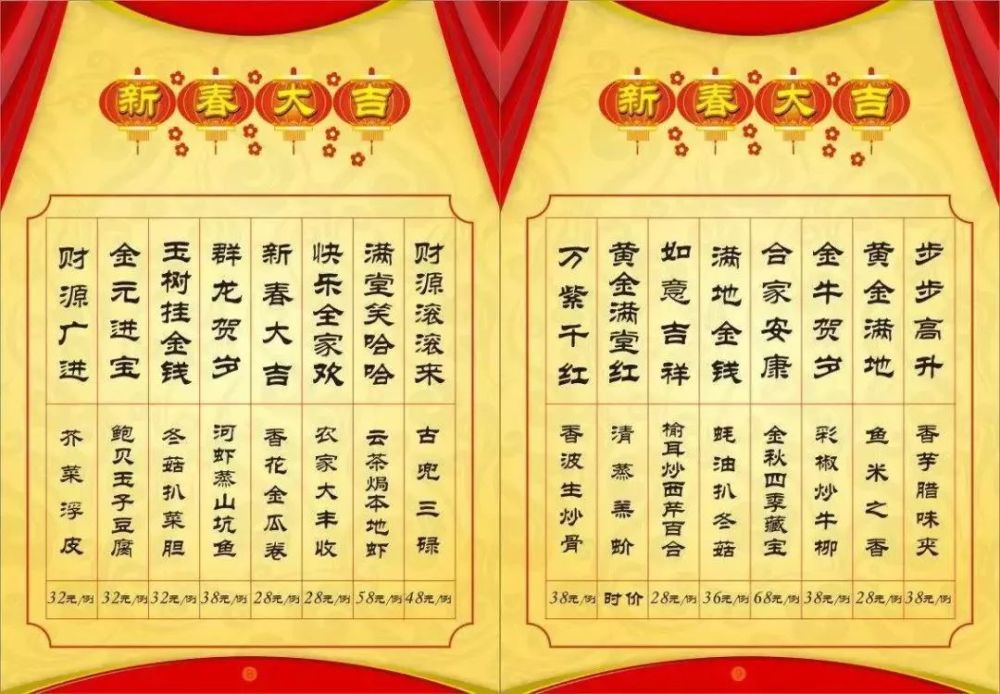 新春大吉
财源广进
芥菜浮皮
32元/例
金元进宝
鲍贝玉子豆腐
32元/例
玉树挂金钱
冬菇扒菜胆
32元/例
群龙贺岁
河虾蒸山坑鱼
38元/例
新春大吉
香花金瓜卷
28元/例
快乐全家欢
农家大丰收
28元/例
满堂笑哈哈
云茶焗本地虾
58元/例
财源滚滚来
古兜三碌
48元/例
新春大吉
万紫千红
香波生炒骨
38元/例
黄金满堂红
清蒸羔蚧
时价
如意吉祥
榆耳炒西芹百合
28元/例
满地金钱
蚝油扒冬菇
36元/例
合家安康
金秋四季藏宝
68元/例
金牛贺岁
彩椒炒牛柳
38元/例
黄金满地
鱼米之香
28元/例
步步高升
香芋腊味夹
38元/例